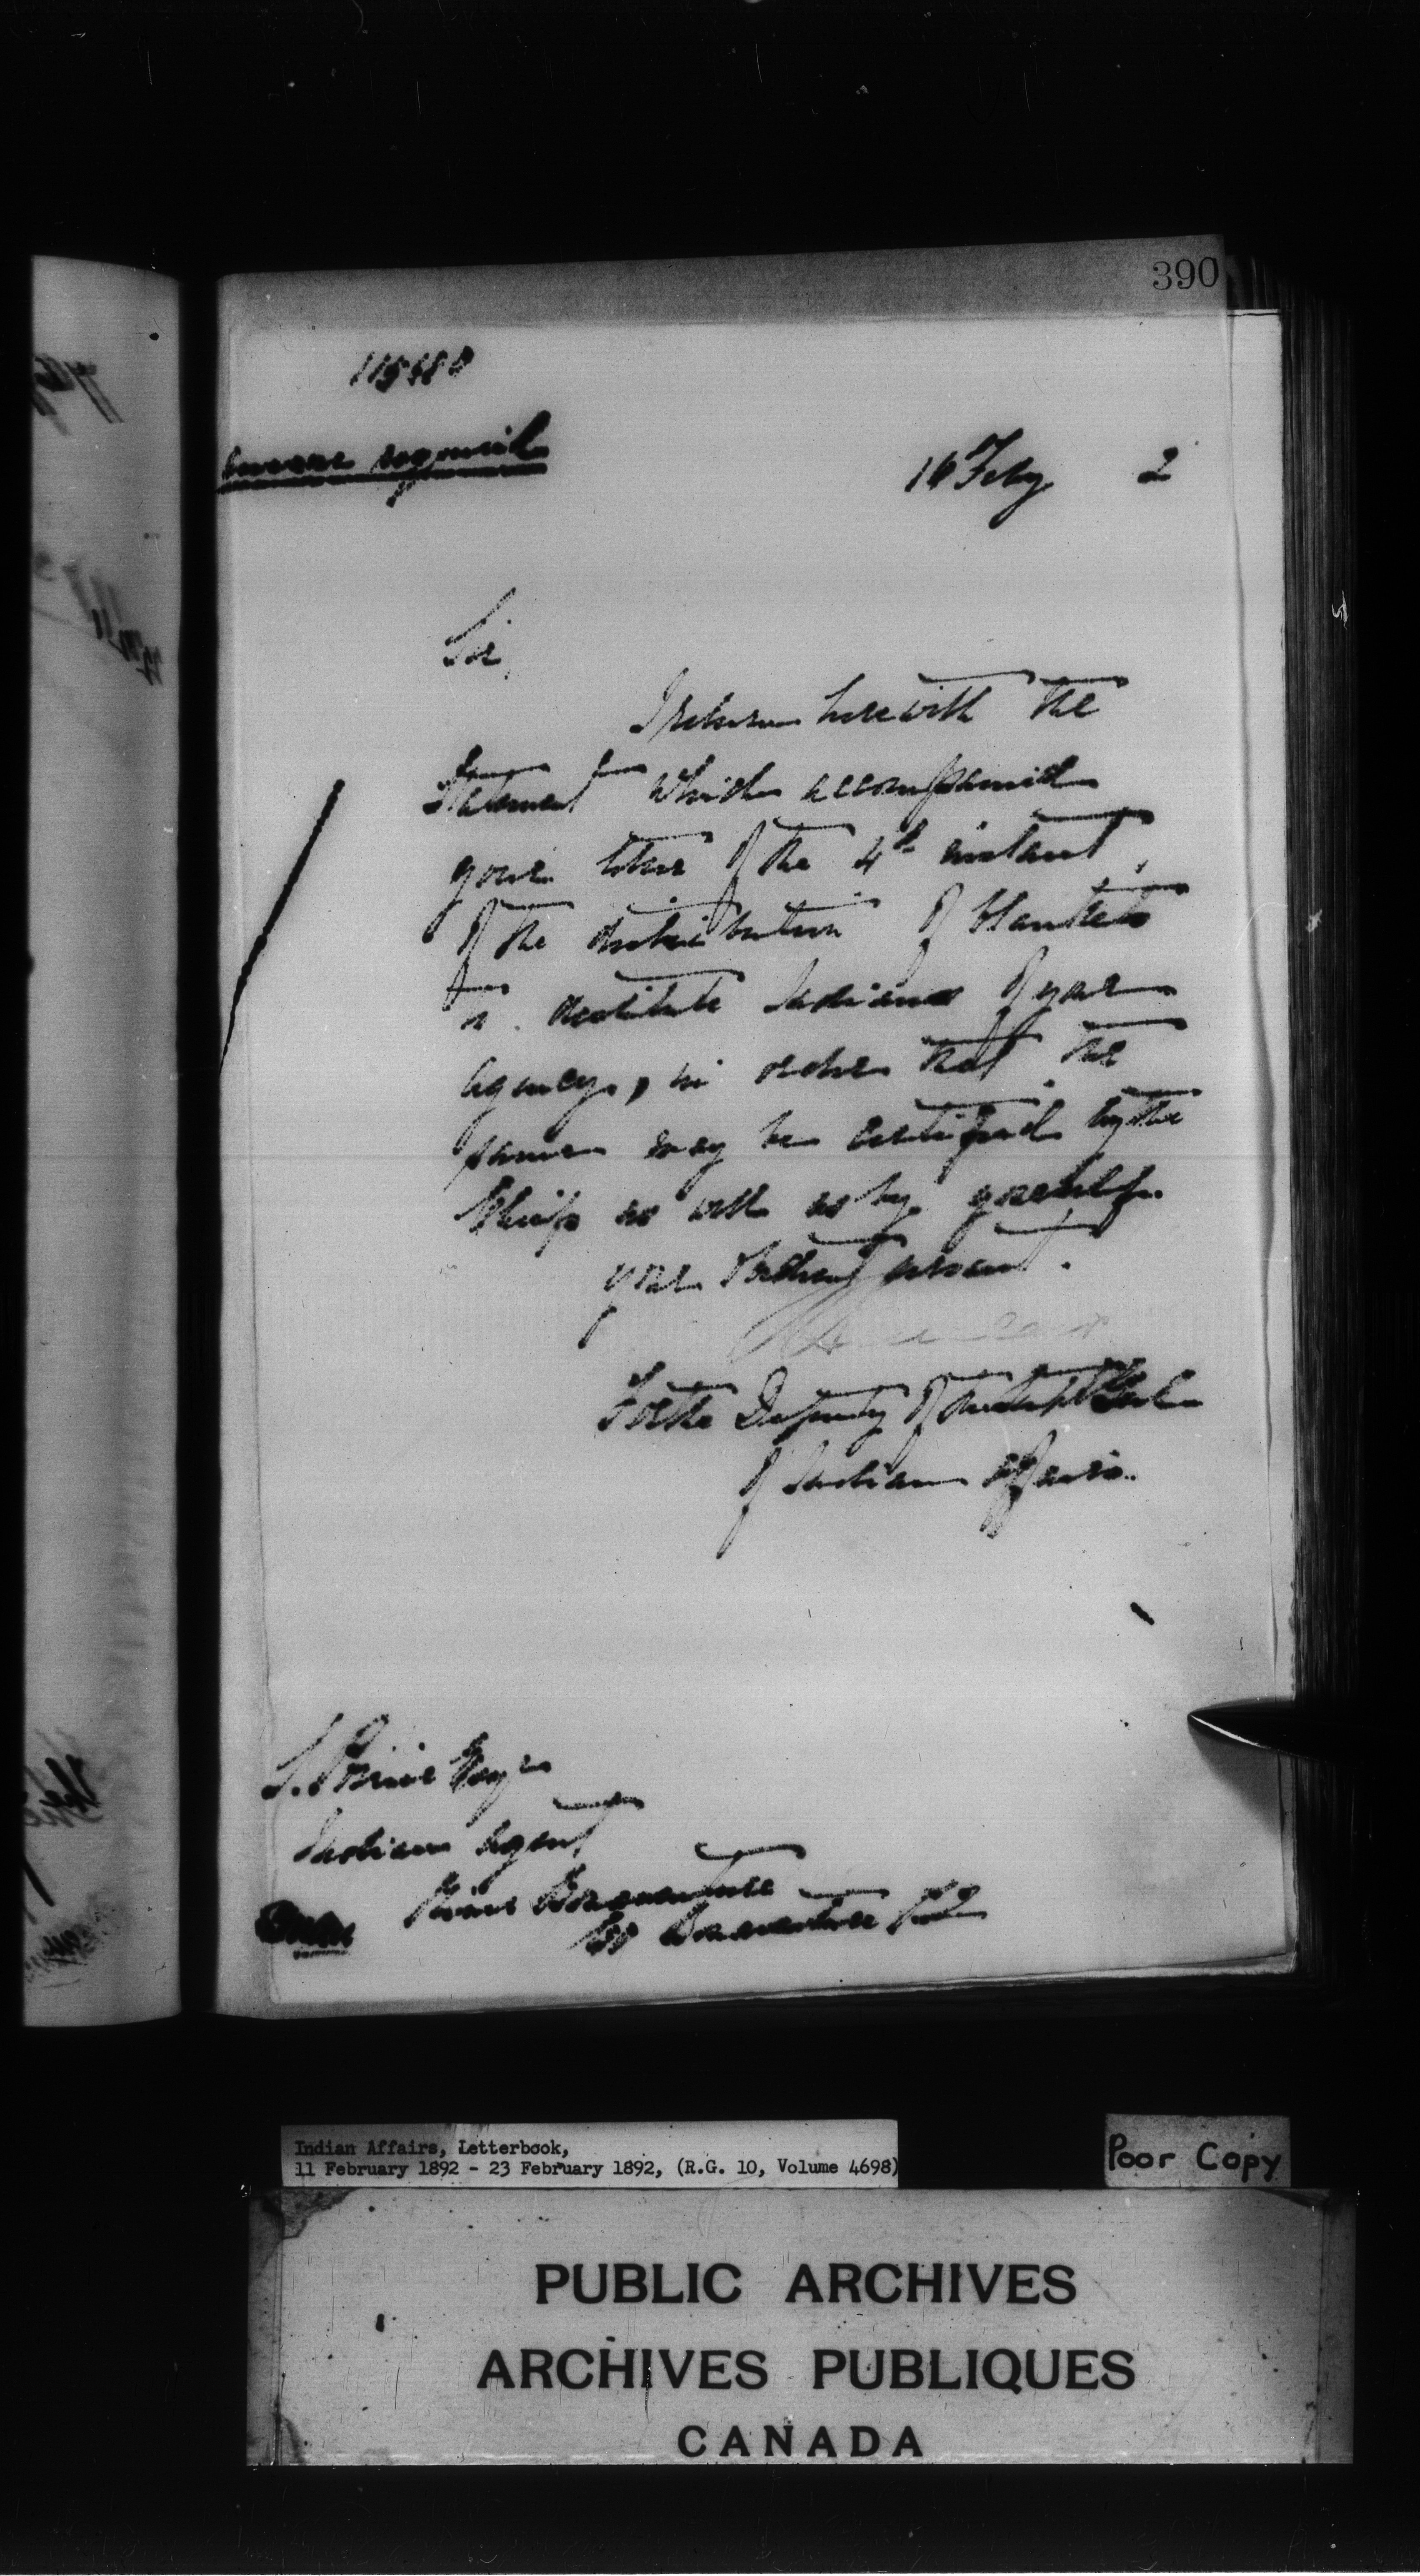 390
115680
16 Feby 2
Sir,
I return herewith the
Statement which accompanied
your letter of the 4th instant,
of the distribution of blankets
to destitute Indians of your
Agency, in order that the
same may be certified by the
Chief as well as by yourself.
Your Obedient servant.
For the Deputy of the Supt Genl
of Indian Affairs.
Esqre
Indian Agent
Bonaventure
Co Bonaventure P.Q
Indian Affairs, Letterbook,
11 February 1892 - 23 February 1892, (R.G. 10, Volume 4698)
Poor Copy
PUBLIC ARCHIVES
ARCHIVES PUBLIQUES
CANADA